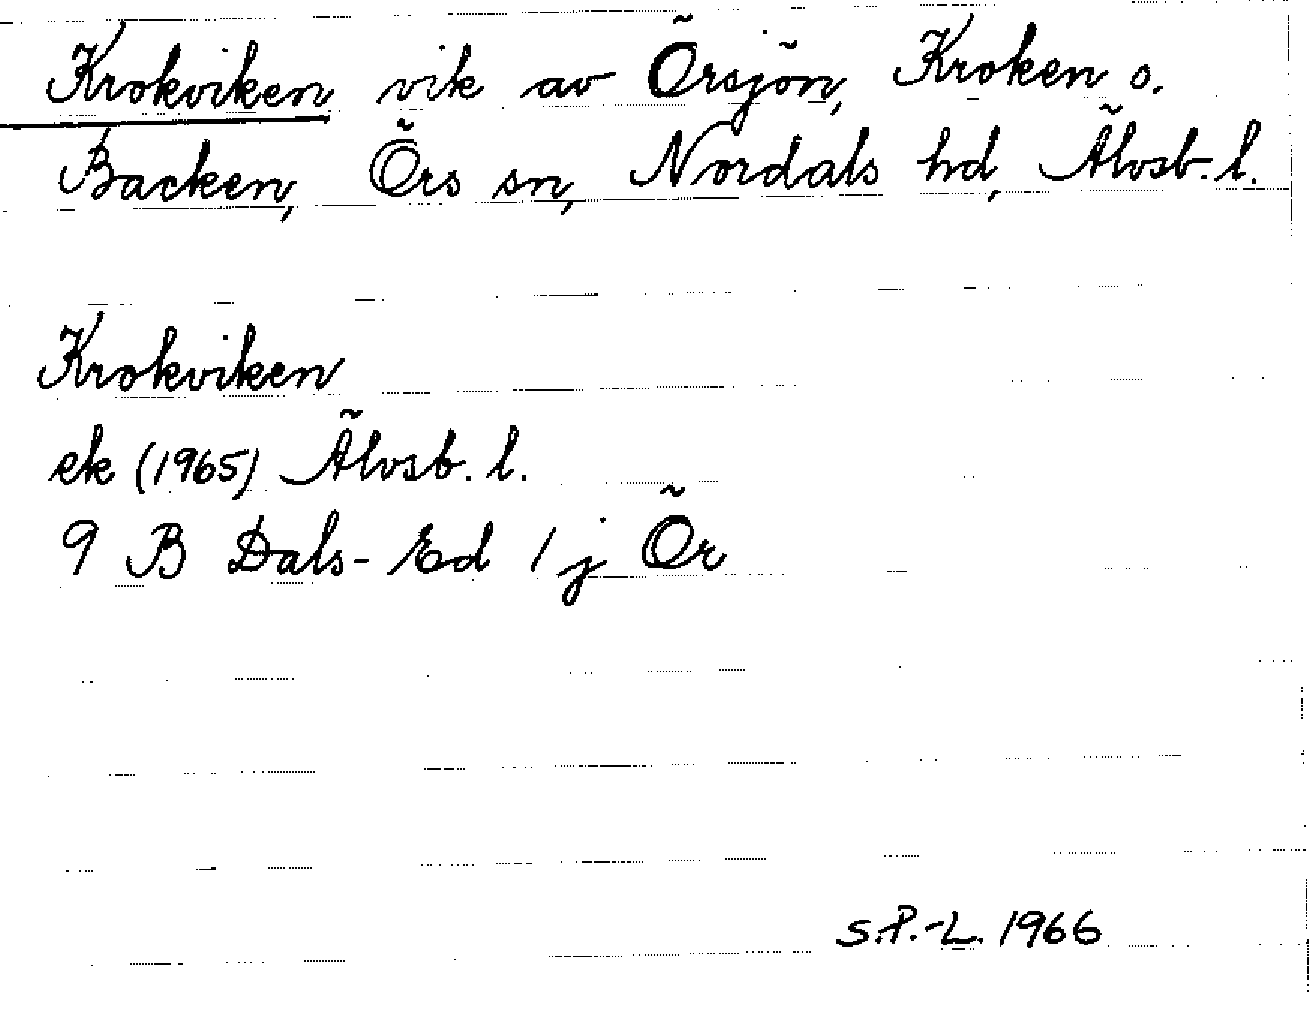 Krokviken vik av Örsjön, Kroken o.
Backen, Örs sn, Nordals hd, Älvsb. l.
Krokviken
ek (1965) Älvsb. l.
9 B Dals-Ed 1 j Ör
S.P.-L. 1966